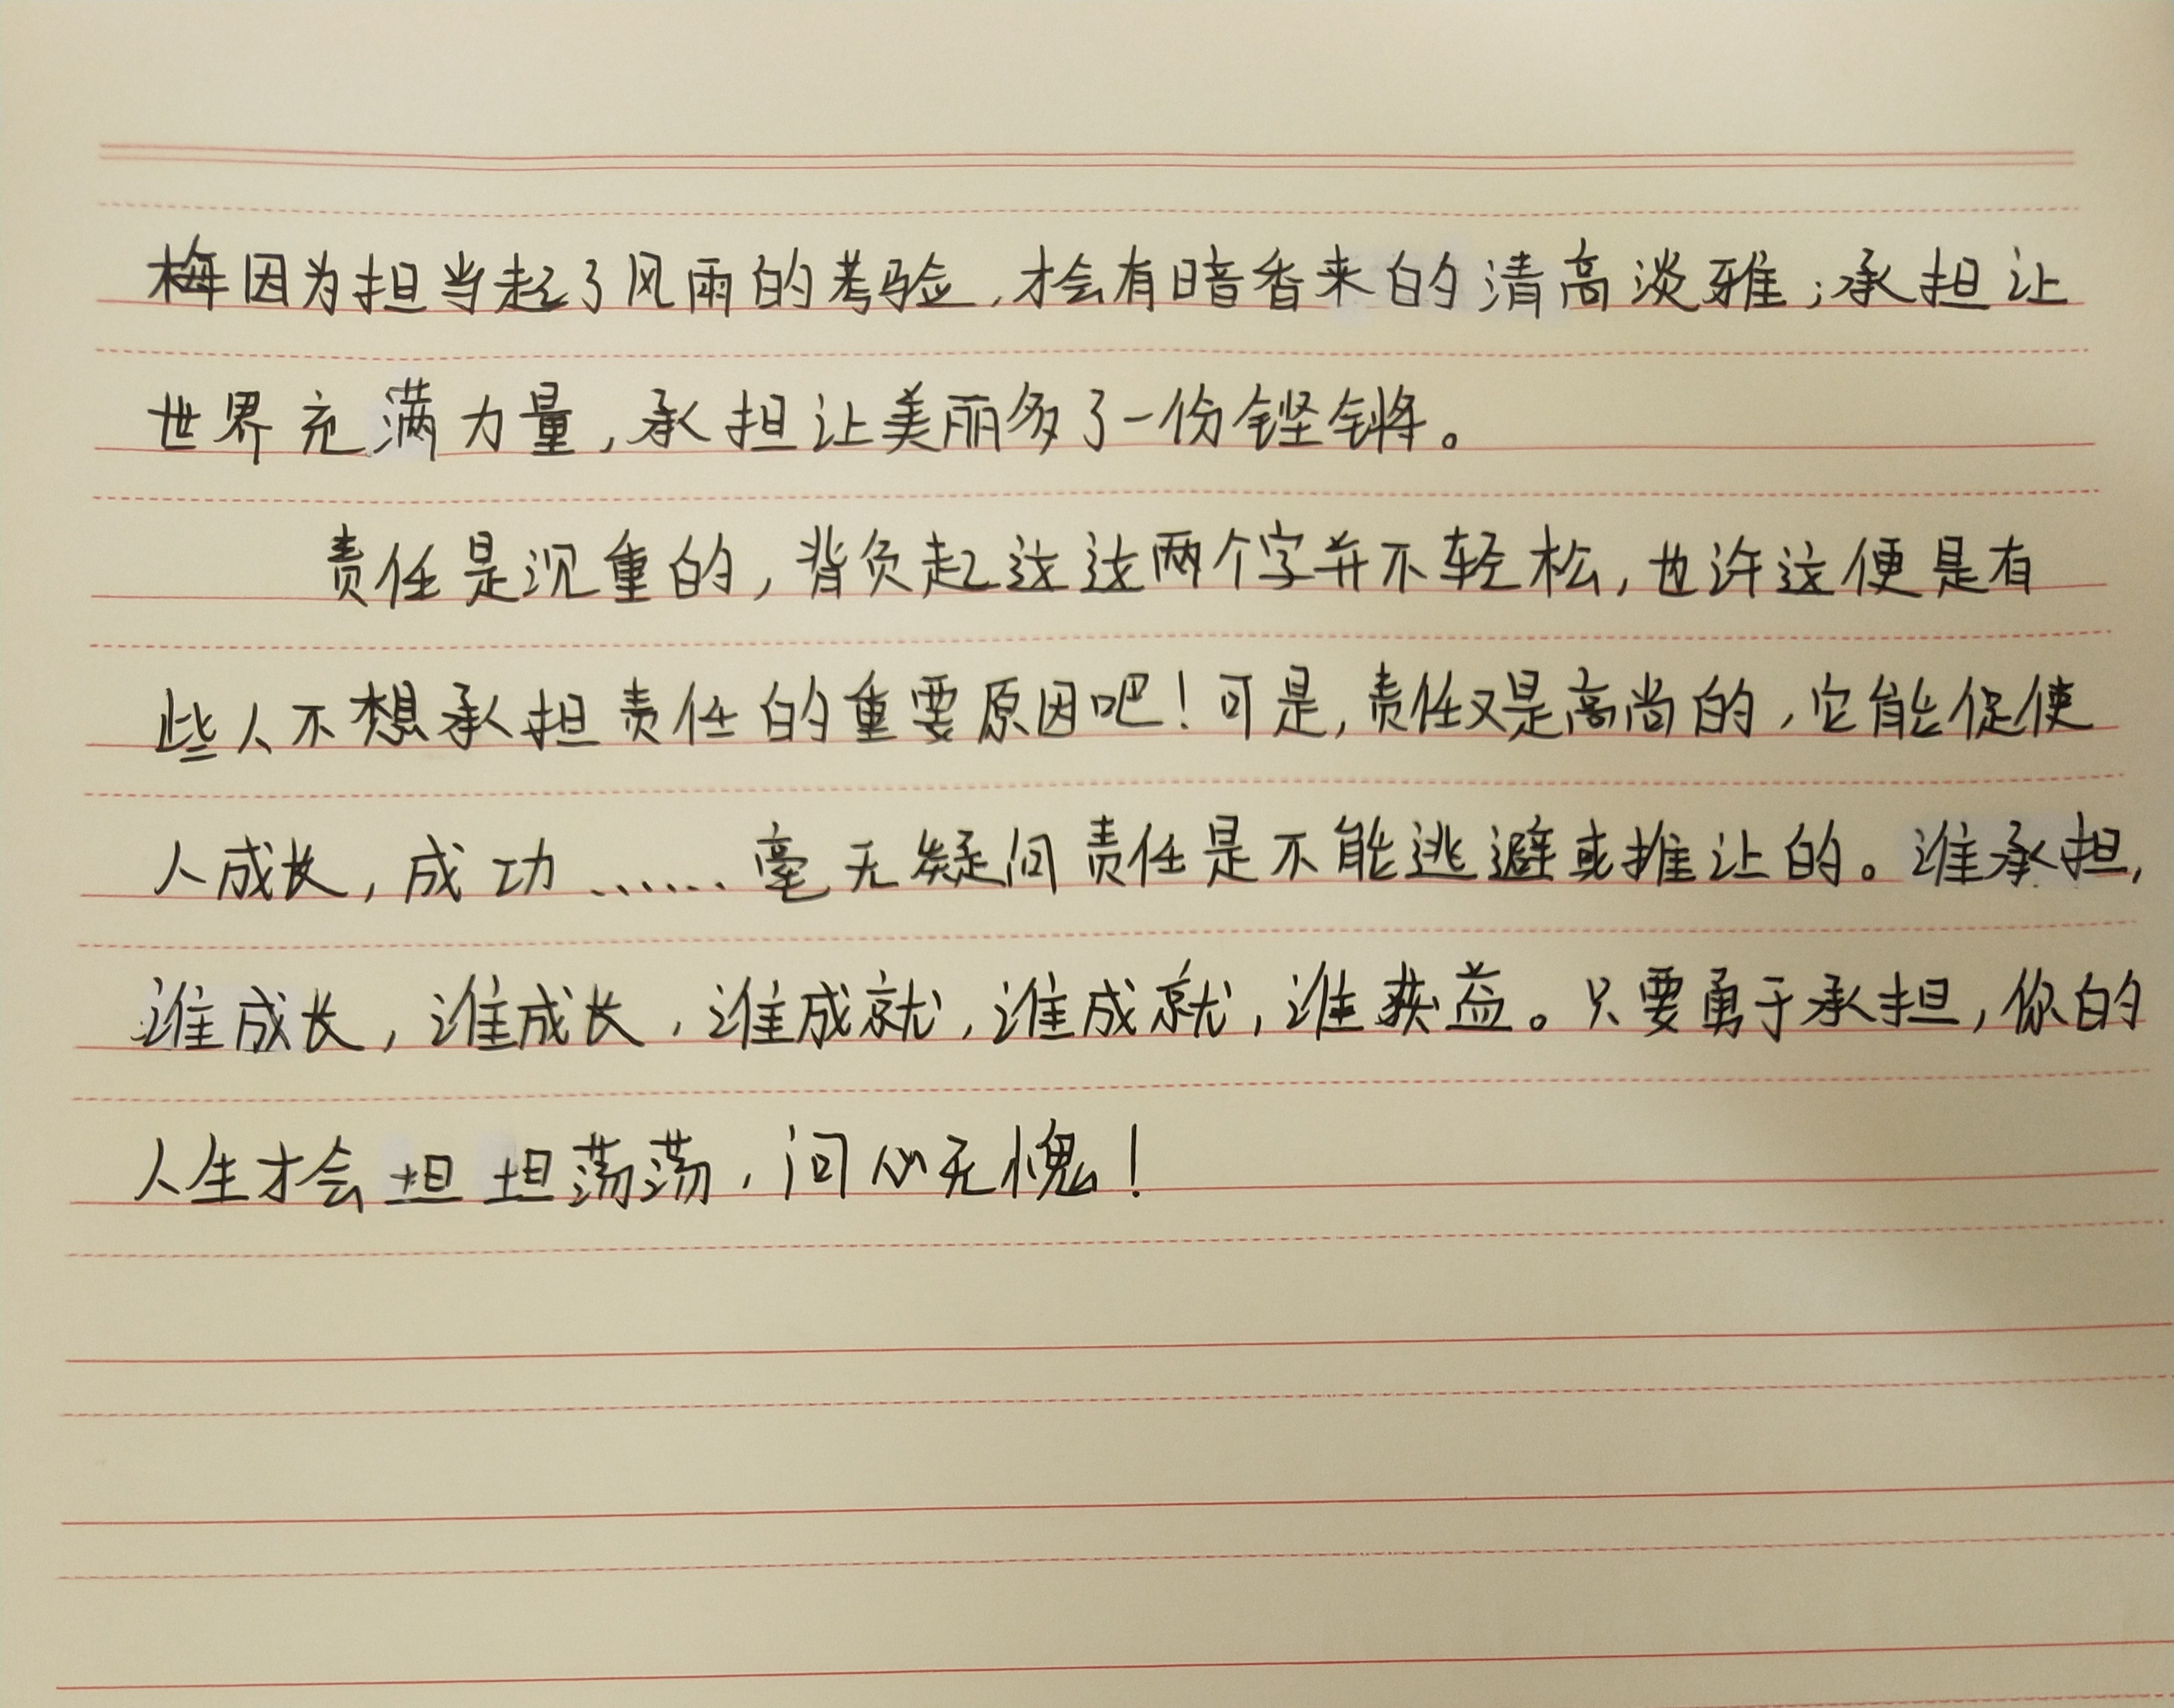 梅因为担当起了风雨的考验,才会有暗香来的清高淡雅;承担让
世界充满力量,承担让美丽多了一份铿锵。
责任是沉重的,背负起这这两个字并不轻松,也许这便是有
些人不想承担责任的重要原因吧!可是,责任又是高尚的,它能促使
人成长,成功……毫无疑问责任是不能逃避或推让的。谁承担,
谁成长,谁成长,谁成就,谁成就,谁获益。只要勇于承担,你的
人生才会坦坦荡荡,问心无愧!